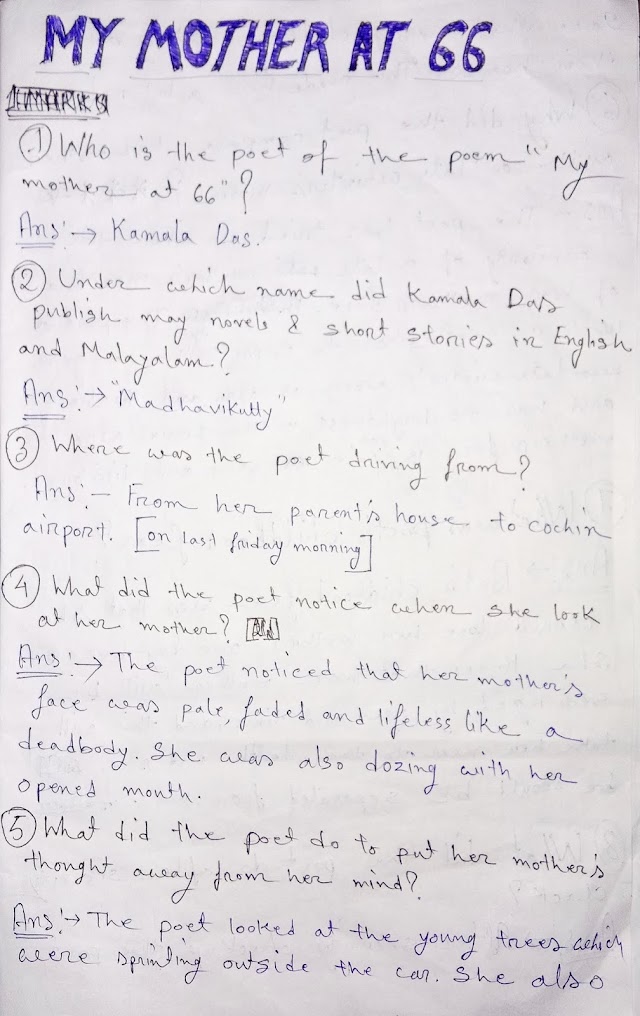 MY MOTHER AT 66
① Who is the poet of the poem "My
mother at 66"?
Ans:→ Kamala Das.
② Under which name did Kamala Das
publish may novels & short stories in English
and Malayalam?
Ans:→ "Madhavikutty"
③ Where was the poet driving from?
Ans:– From her parent's house to cochin
airport. [on last friday morning]
④ What did the poet notice when she look
at her mother?
Ans:→ The poet noticed that her mother's
face was pale, faded and lifeless like a
deadbody. She was also dozing with her
opened month.
⑤ What did the poet do to put her mother's
thought away from her mind?
Ans:→ The poet looked at the young trees which
were sprinting outside the car. She also